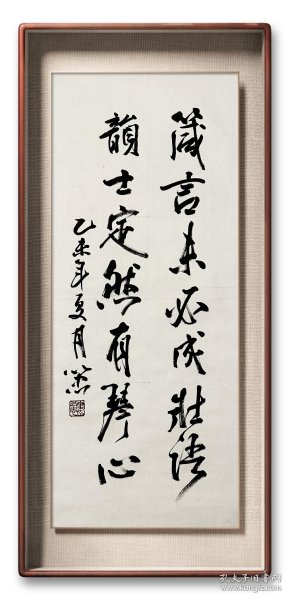 箴言未必成壮语
韻士定然有琴心
乙未年夏月
孔夫子旧书网
www.kongfz.com